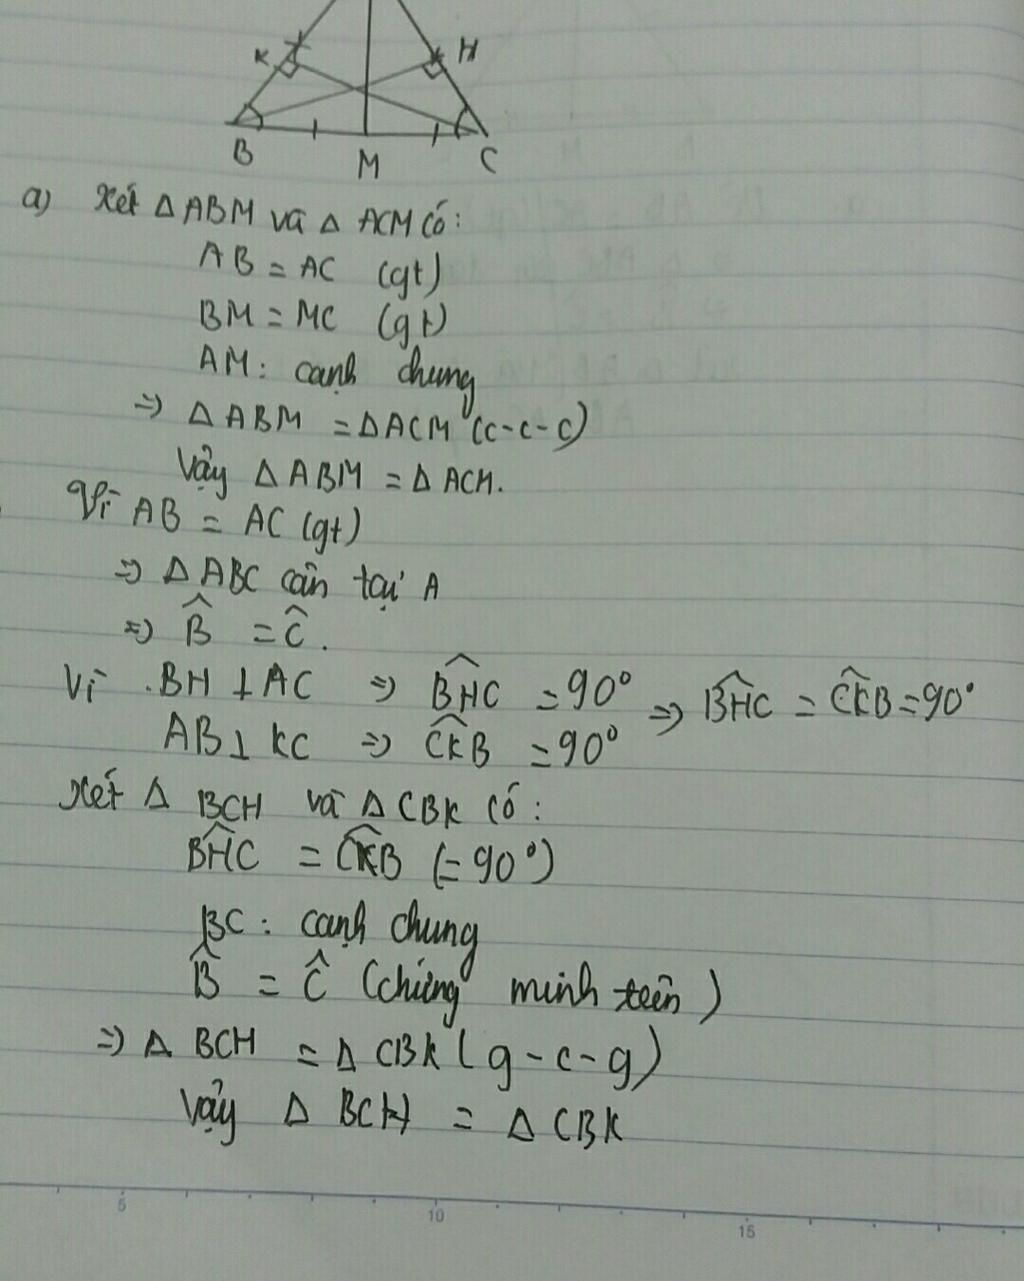 K H
B M C
a) Xét Δ ABM và Δ ACM có:
AB = AC (gt)
BM = MC (gt)
AM: cạnh chung
=> Δ ABM = Δ ACM (c-c-c)
Vậy Δ ABM = Δ ACM.
Vì AB = AC (gt)
=> Δ ABC cân tại A
=> B̂ = Ĉ.
Vì BH ⊥ AC => BĤC = 90° => BĤC = CK̂B = 90°
AB ⊥ KC => CK̂B = 90°
Xét Δ BCH và Δ CBK có:
BĤC = CK̂B (= 90°)
BC: cạnh chung
B̂ = Ĉ (chứng minh trên)
=> Δ BCH = Δ CBK (g-c-g)
Vậy Δ BCH = Δ CBK
5 10 15